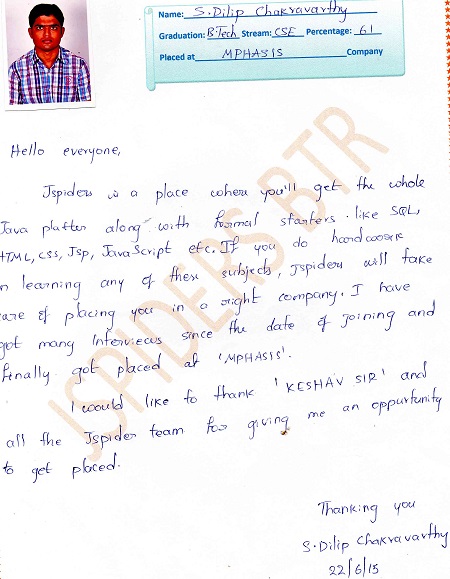 Name: S.Dilip Chakravarthy
Graduation: B.Tech Stream: CSE Percentage: 61
Placed at MPHASIS Company
Hello everyone,
Jspiders is a place where you'll get the whole
Java platter along with formal starters. like SQL,
HTML, CSS, Jsp, JavaScript etc. If you do hardwork
n learning any of these subjects, Jspiders will take
are of placing you in a right company. I have
got many Interviews since the date of joining and
finally got placed at 'MPHASIS'.
I would like to thank 'KESHAV SIR' and
all the Jspider team for giving me an oppurtunity
to get placed.
Thanking you
S.Dilip Chakravarthy
22/6/15
JSPIDERS BTR